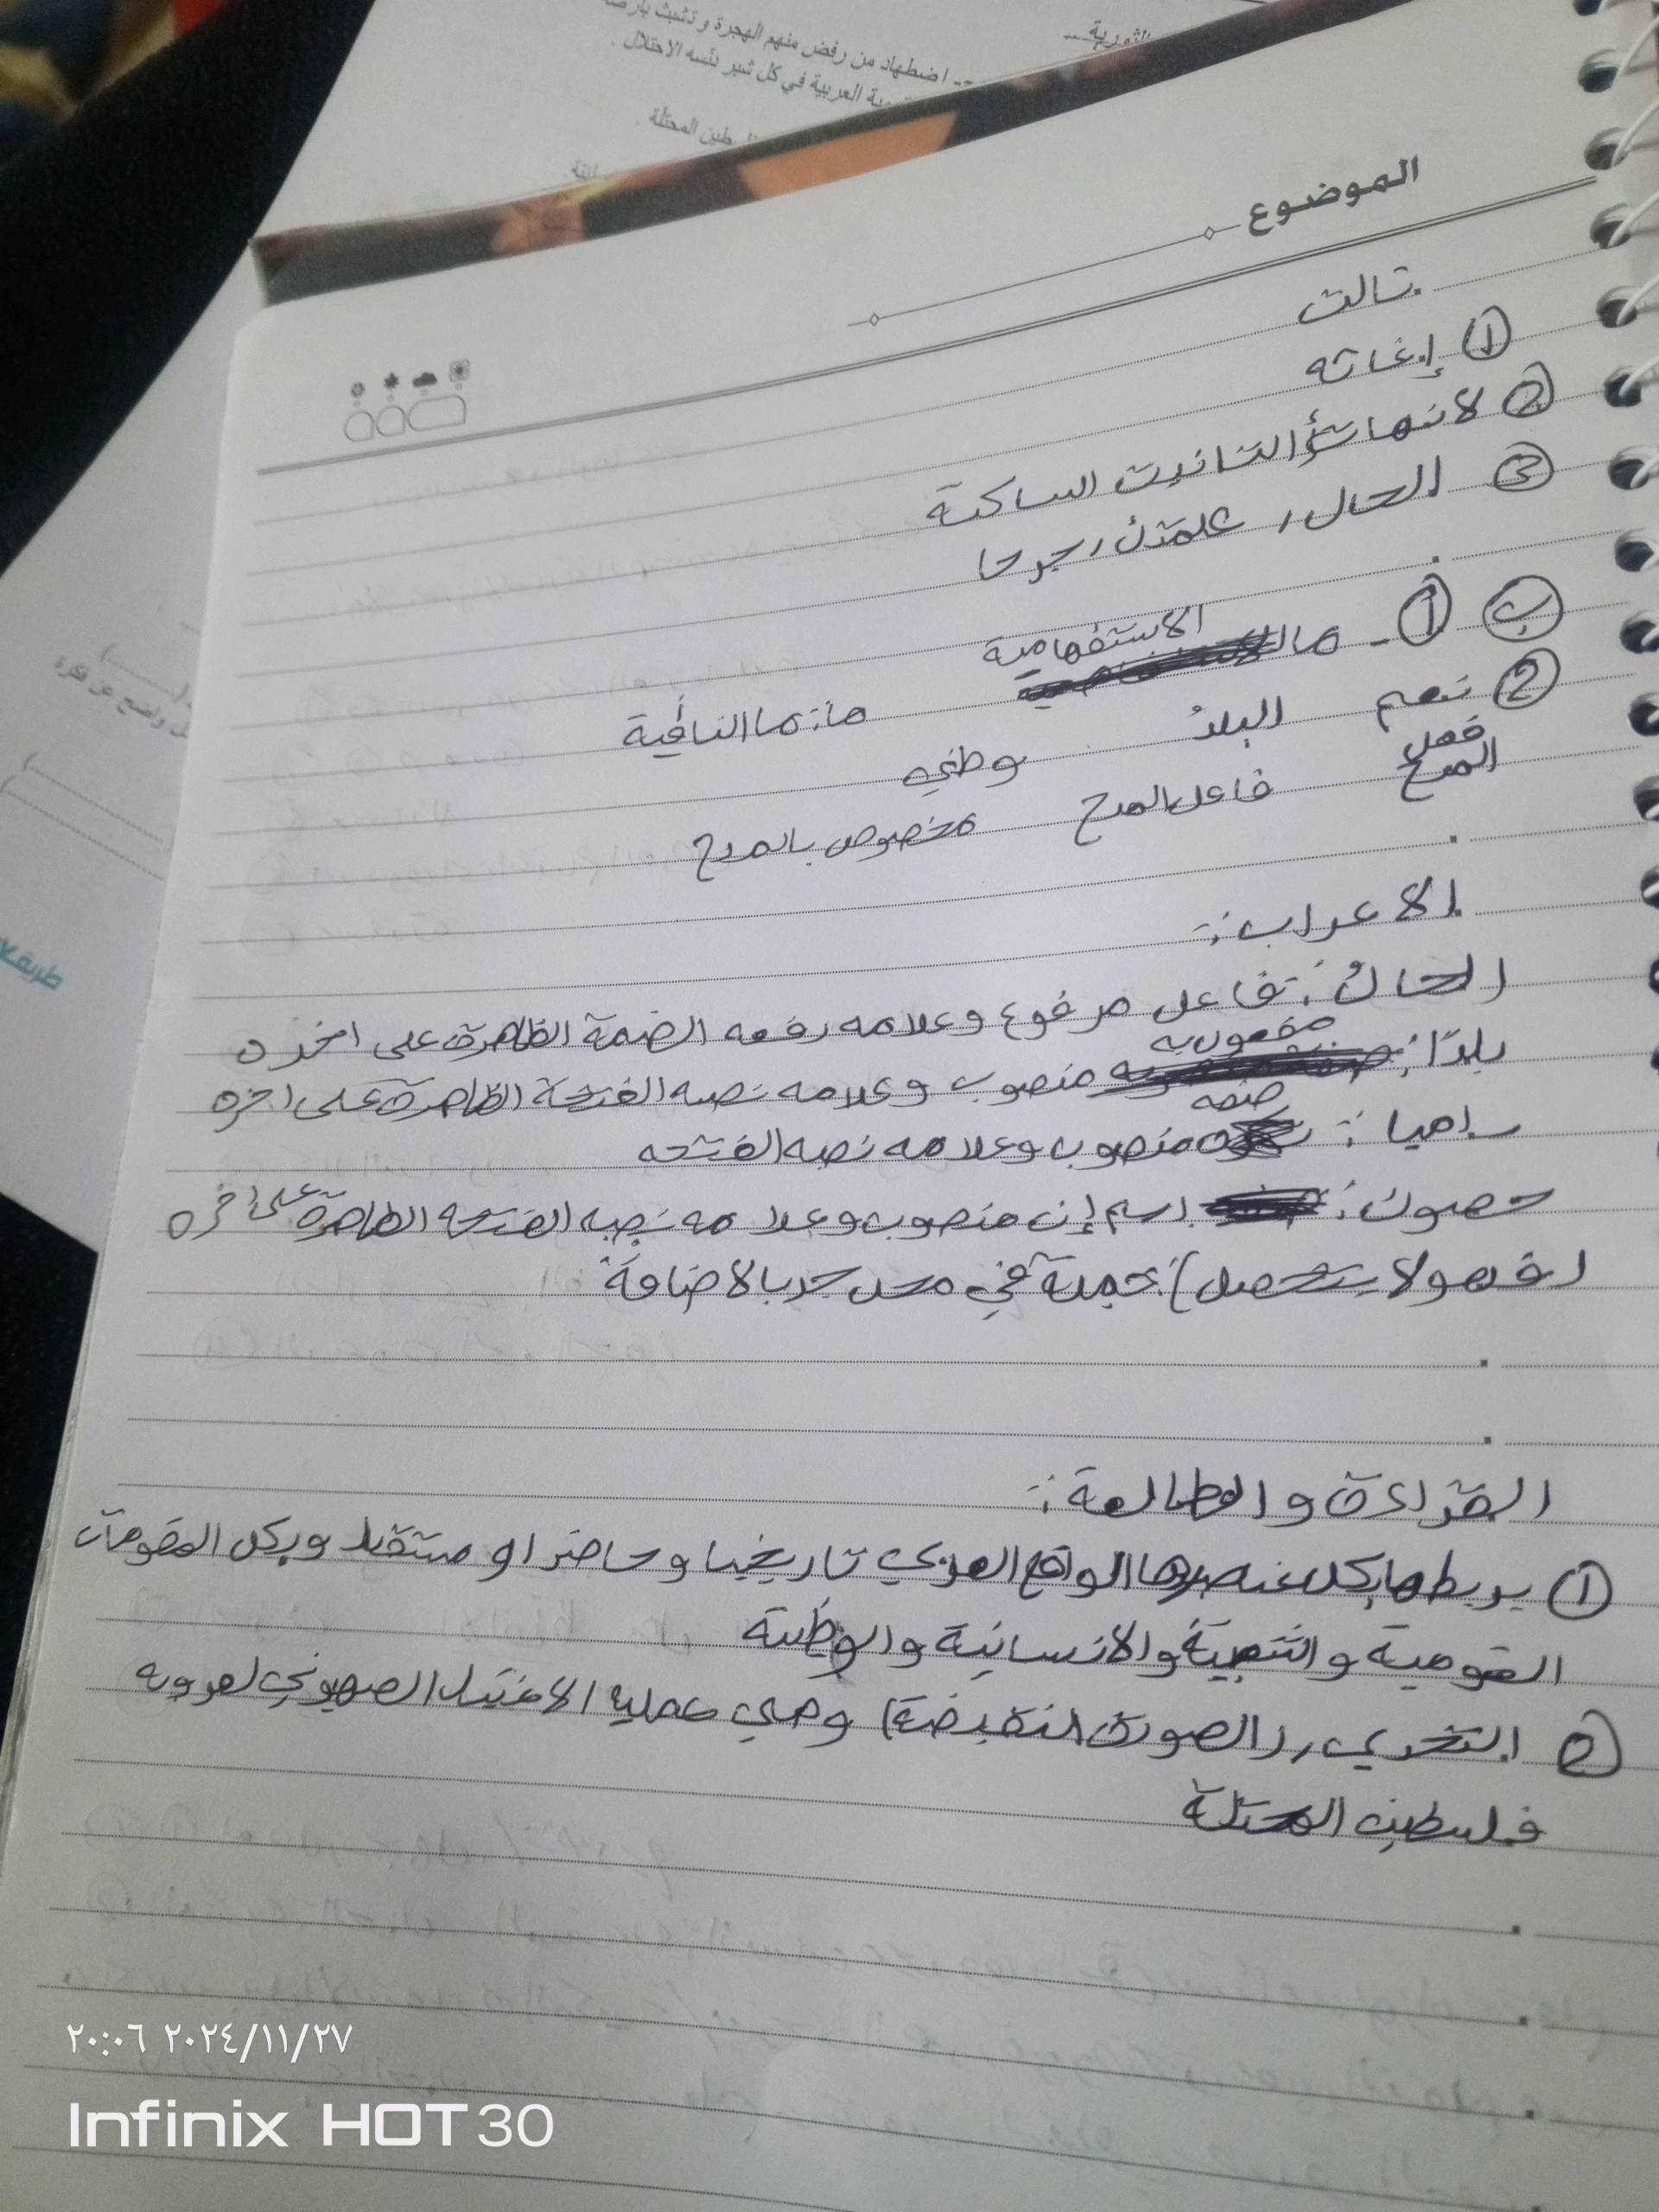 الثورية
-- اضطهاد من رفض منهم الهجرة و تشبث بأرضه
العربية في كل شبر دنسه الاحتلال .
المحتلة .
الموضوع
تالت
① إغاثه
② لانها تاؤ التانيت الساكنة
③ الحال , علمتن , جرحا
ب ① - ما الاستفهامية
ما: ما النافية
② نعم البلدُ وطني
فعل المدح فاعل المدح مخصوص بالمدح
الاعراب :-
الحالُ : فاعل مرفوع وعلامه رفعه الضمة الظاهرة على اخره
بلدًا : مفعول به منصوب وعلامه نصبه الفتحة الظاهرة على اخره
ساميا : صفه منصوب وعلامه نصبه الفتحه
حصون : اسم إن منصوب وعلامه نصبه الفتحه الظاهرة على اخره
(فهو لا يتحصل) : جملة في محل جر بالاضافة
القراءة والمطالعة :
① يربطها بكل عنصرها الواقع العربي تاريخيا وحاضرا و مستقبلا وبكل المقومات
القومية والشعبية والانسانية والوطنية
② التحدي , (الصورة النقيضة) وهي عملية الاغتيال الصهيوني لعروبه
فلسطين المحتلة
٢٠:٠٦ ٢٠٢٤/١١/٢٧
Infinix HOT 30